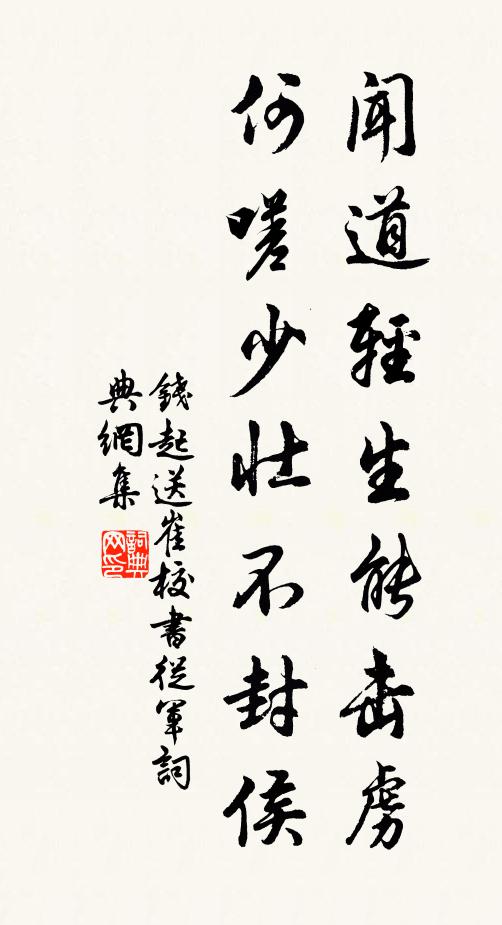 聞道輕生能击虏
何嗟少壮不封侯
錢起送崔校書從軍詞
典網集
詞典网印